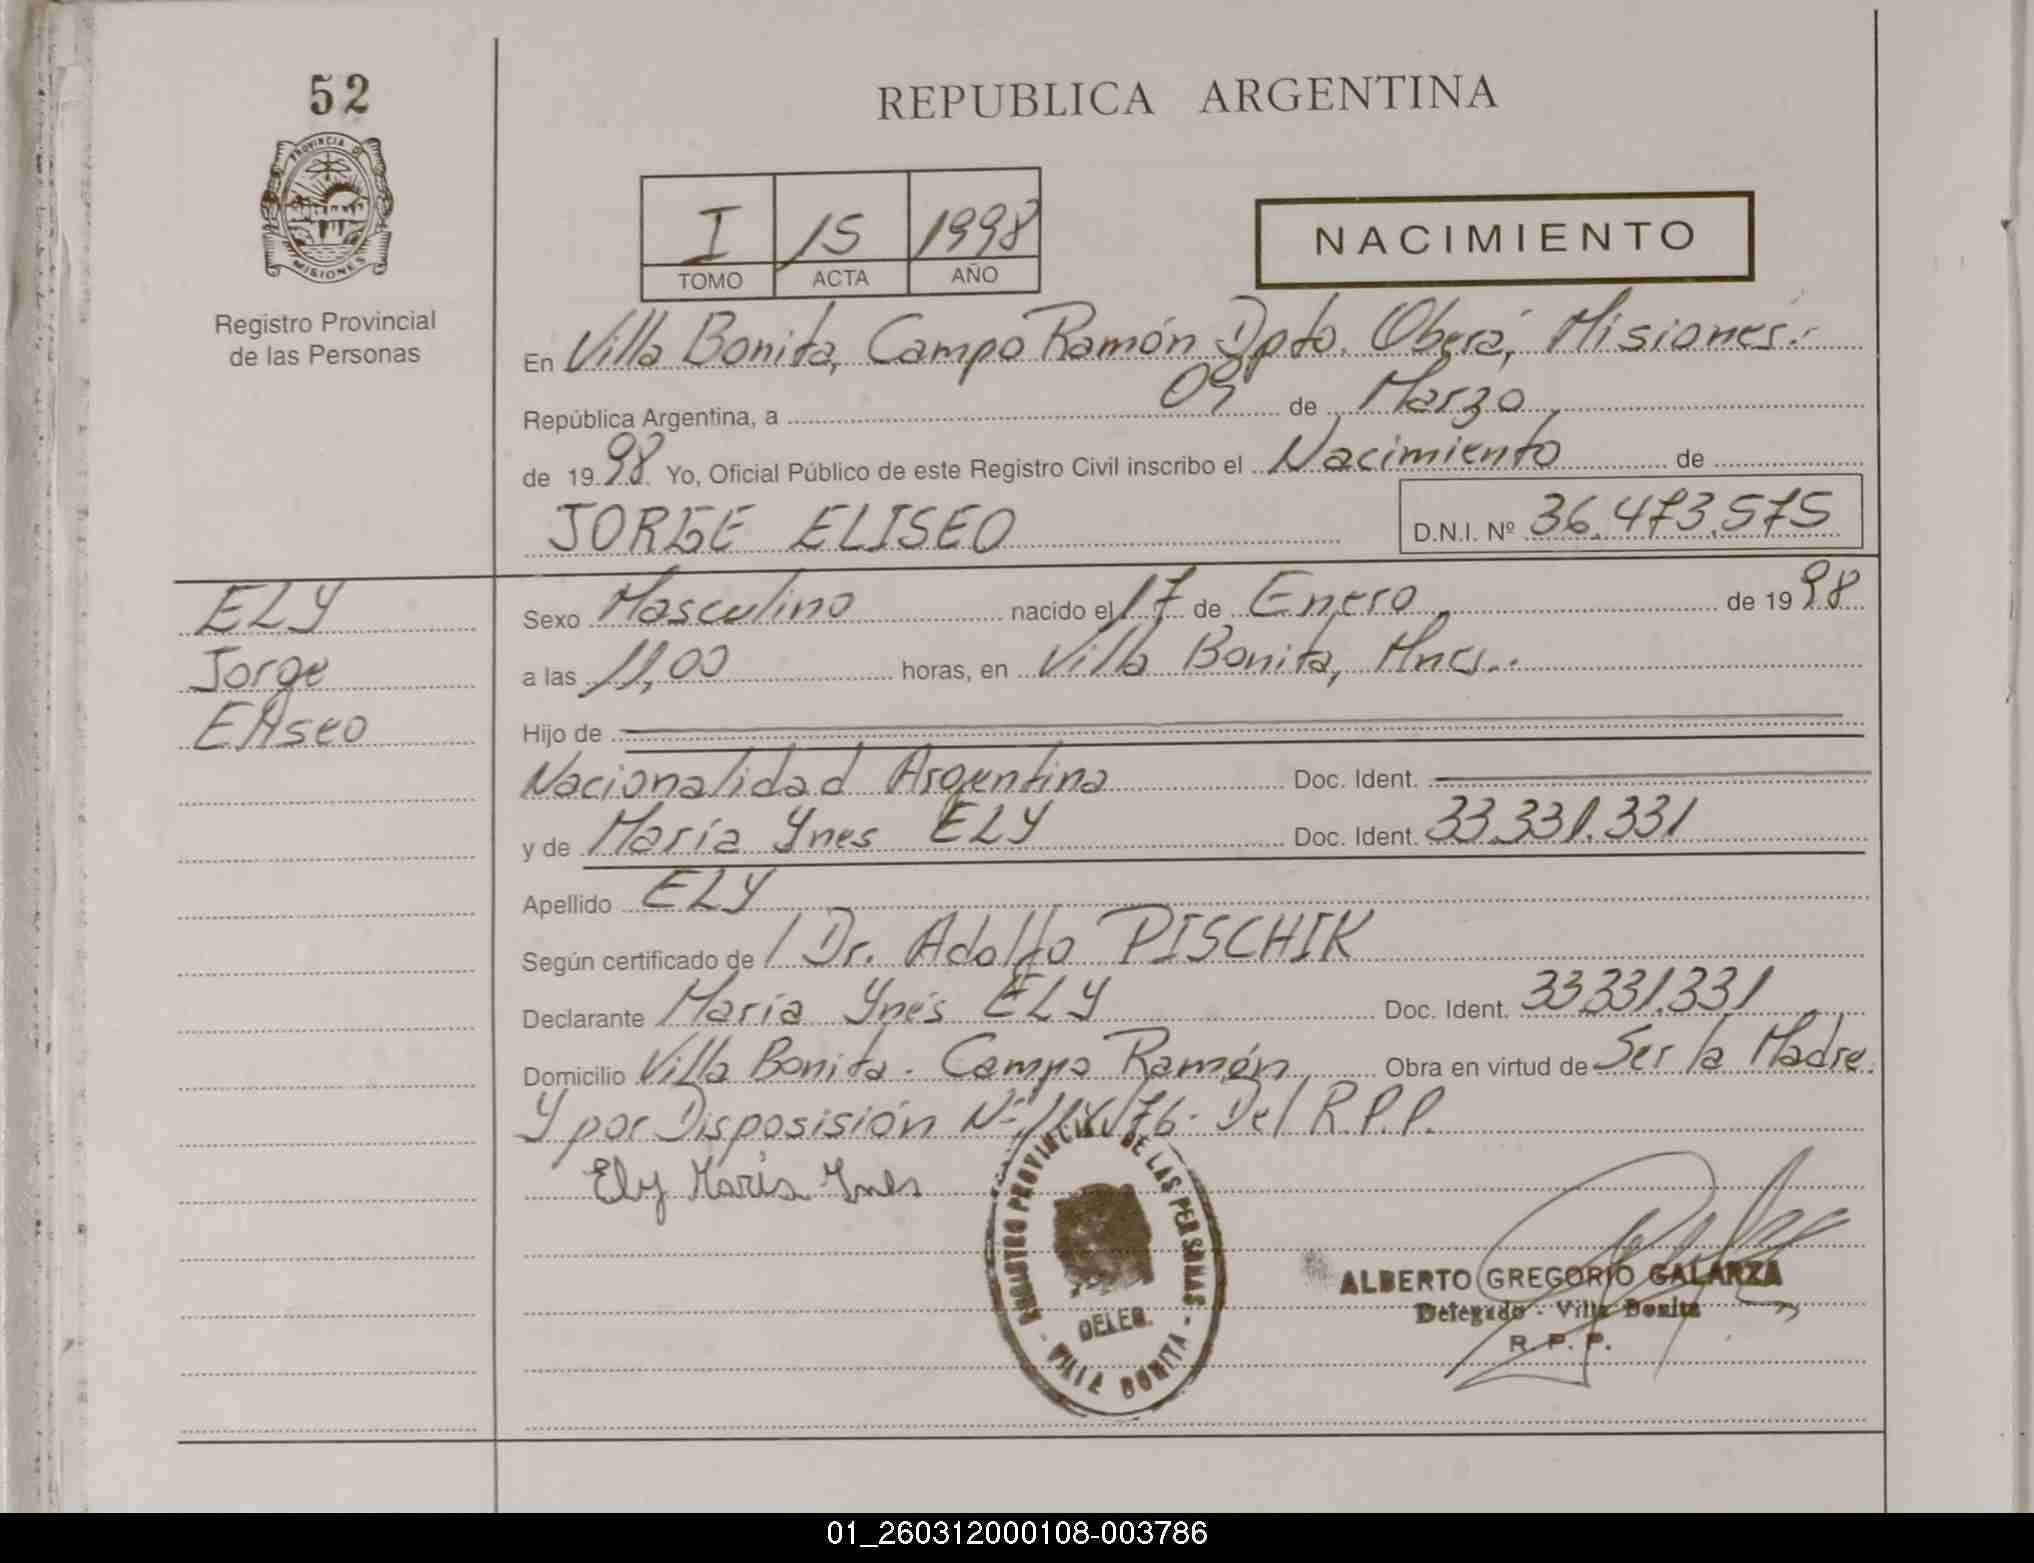 52
REPUBLICA ARGENTINA
PROVINCIA DE
MISIONES
Registro Provincial
de las Personas
I 15 1998
TOMO ACTA AÑO
NACIMIENTO
En Villa Bonita, Campo Ramón Dpto. Oberá, Misiones.
República Argentina, a 09 de Marzo
de 1998 Yo, Oficial Público de este Registro Civil inscribo el Nacimiento de
JORGE ELISEO D.N.I. Nº 36.473.575
ELY
Jorge
Eliseo
Sexo Masculino nacido el 17 de Enero de 1998
a las 11,00 horas, en Villa Bonita, Mnes.
Hijo de
Nacionalidad Argentina Doc. Ident.
y de María Ynes ELY Doc. Ident. 33.331.331
Apellido ELY
Según certificado de / Dr. Adolfo PISCHIK
Declarante María Ynés ELY Doc. Ident. 33.331.331
Domicilio Villa Bonita - Campo Ramón Obra en virtud de Ser la Madre.
Y por Disposisión Nº /76 - Del R.P.P.
Ely María Ynes
REGISTRO PROVINCIAL DE LAS PERSONAS
DELEG.
VILLA BONITA
ALBERTO GREGORIO GALARZA
Delegado - Villa Bonita
R. P. P.
01_260312000108-003786